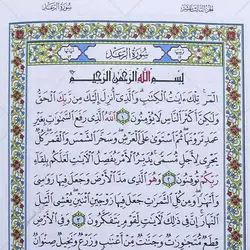 الجزء الثالث عشر
سورة الرعد
سُورَةُ الرَّعْدِ
بِسْمِ اللَّهِ الرَّحْمَٰنِ الرَّحِيمِ
الٓمٓرۚ تِلْكَ ءَايَٰتُ الْكِتَٰبِۗ وَالَّذِىٓ أُنزِلَ إِلَيْكَ مِن رَّبِّكَ الْحَقُّ
وَلَٰكِنَّ أَكْثَرَ النَّاسِ لَا يُؤْمِنُونَ ١ اللَّهُ الَّذِى رَفَعَ السَّمَٰوَٰتِ بِغَيْرِ
عَمَدٍ تَرَوْنَهَاۖ ثُمَّ اسْتَوَىٰ عَلَى الْعَرْشِۖ وَسَخَّرَ الشَّمْسَ وَالْقَمَرَۖ كُلٌّ
يَجْرِى لِأَجَلٍ مُّسَمًّىۚ يُدَبِّرُ الْأَمْرَ يُفَصِّلُ الْءَايَٰتِ لَعَلَّكُم بِلِقَآءِ
رَبِّكُمْ تُوقِنُونَ ٢ وَهُوَ الَّذِى مَدَّ الْأَرْضَ وَجَعَلَ فِيهَا رَوَٰسِىَ
وَأَنْهَٰرًاۖ وَمِن كُلِّ الثَّمَرَٰتِ جَعَلَ فِيهَا زَوْجَيْنِ اثْنَيْنِۖ يُغْشِى الَّيْلَ
النَّهَارَۚ إِنَّ فِى ذَٰلِكَ لَءَايَٰتٍ لِّقَوْمٍ يَتَفَكَّرُونَ ٣ وَفِى الْأَرْضِ
قِطَعٌ مُّتَجَٰوِرَٰتٌ وَجَنَّٰتٌ مِّنْ أَعْنَٰبٍ وَزَرْعٌ وَنَخِيلٌ صِنْوَانٌ